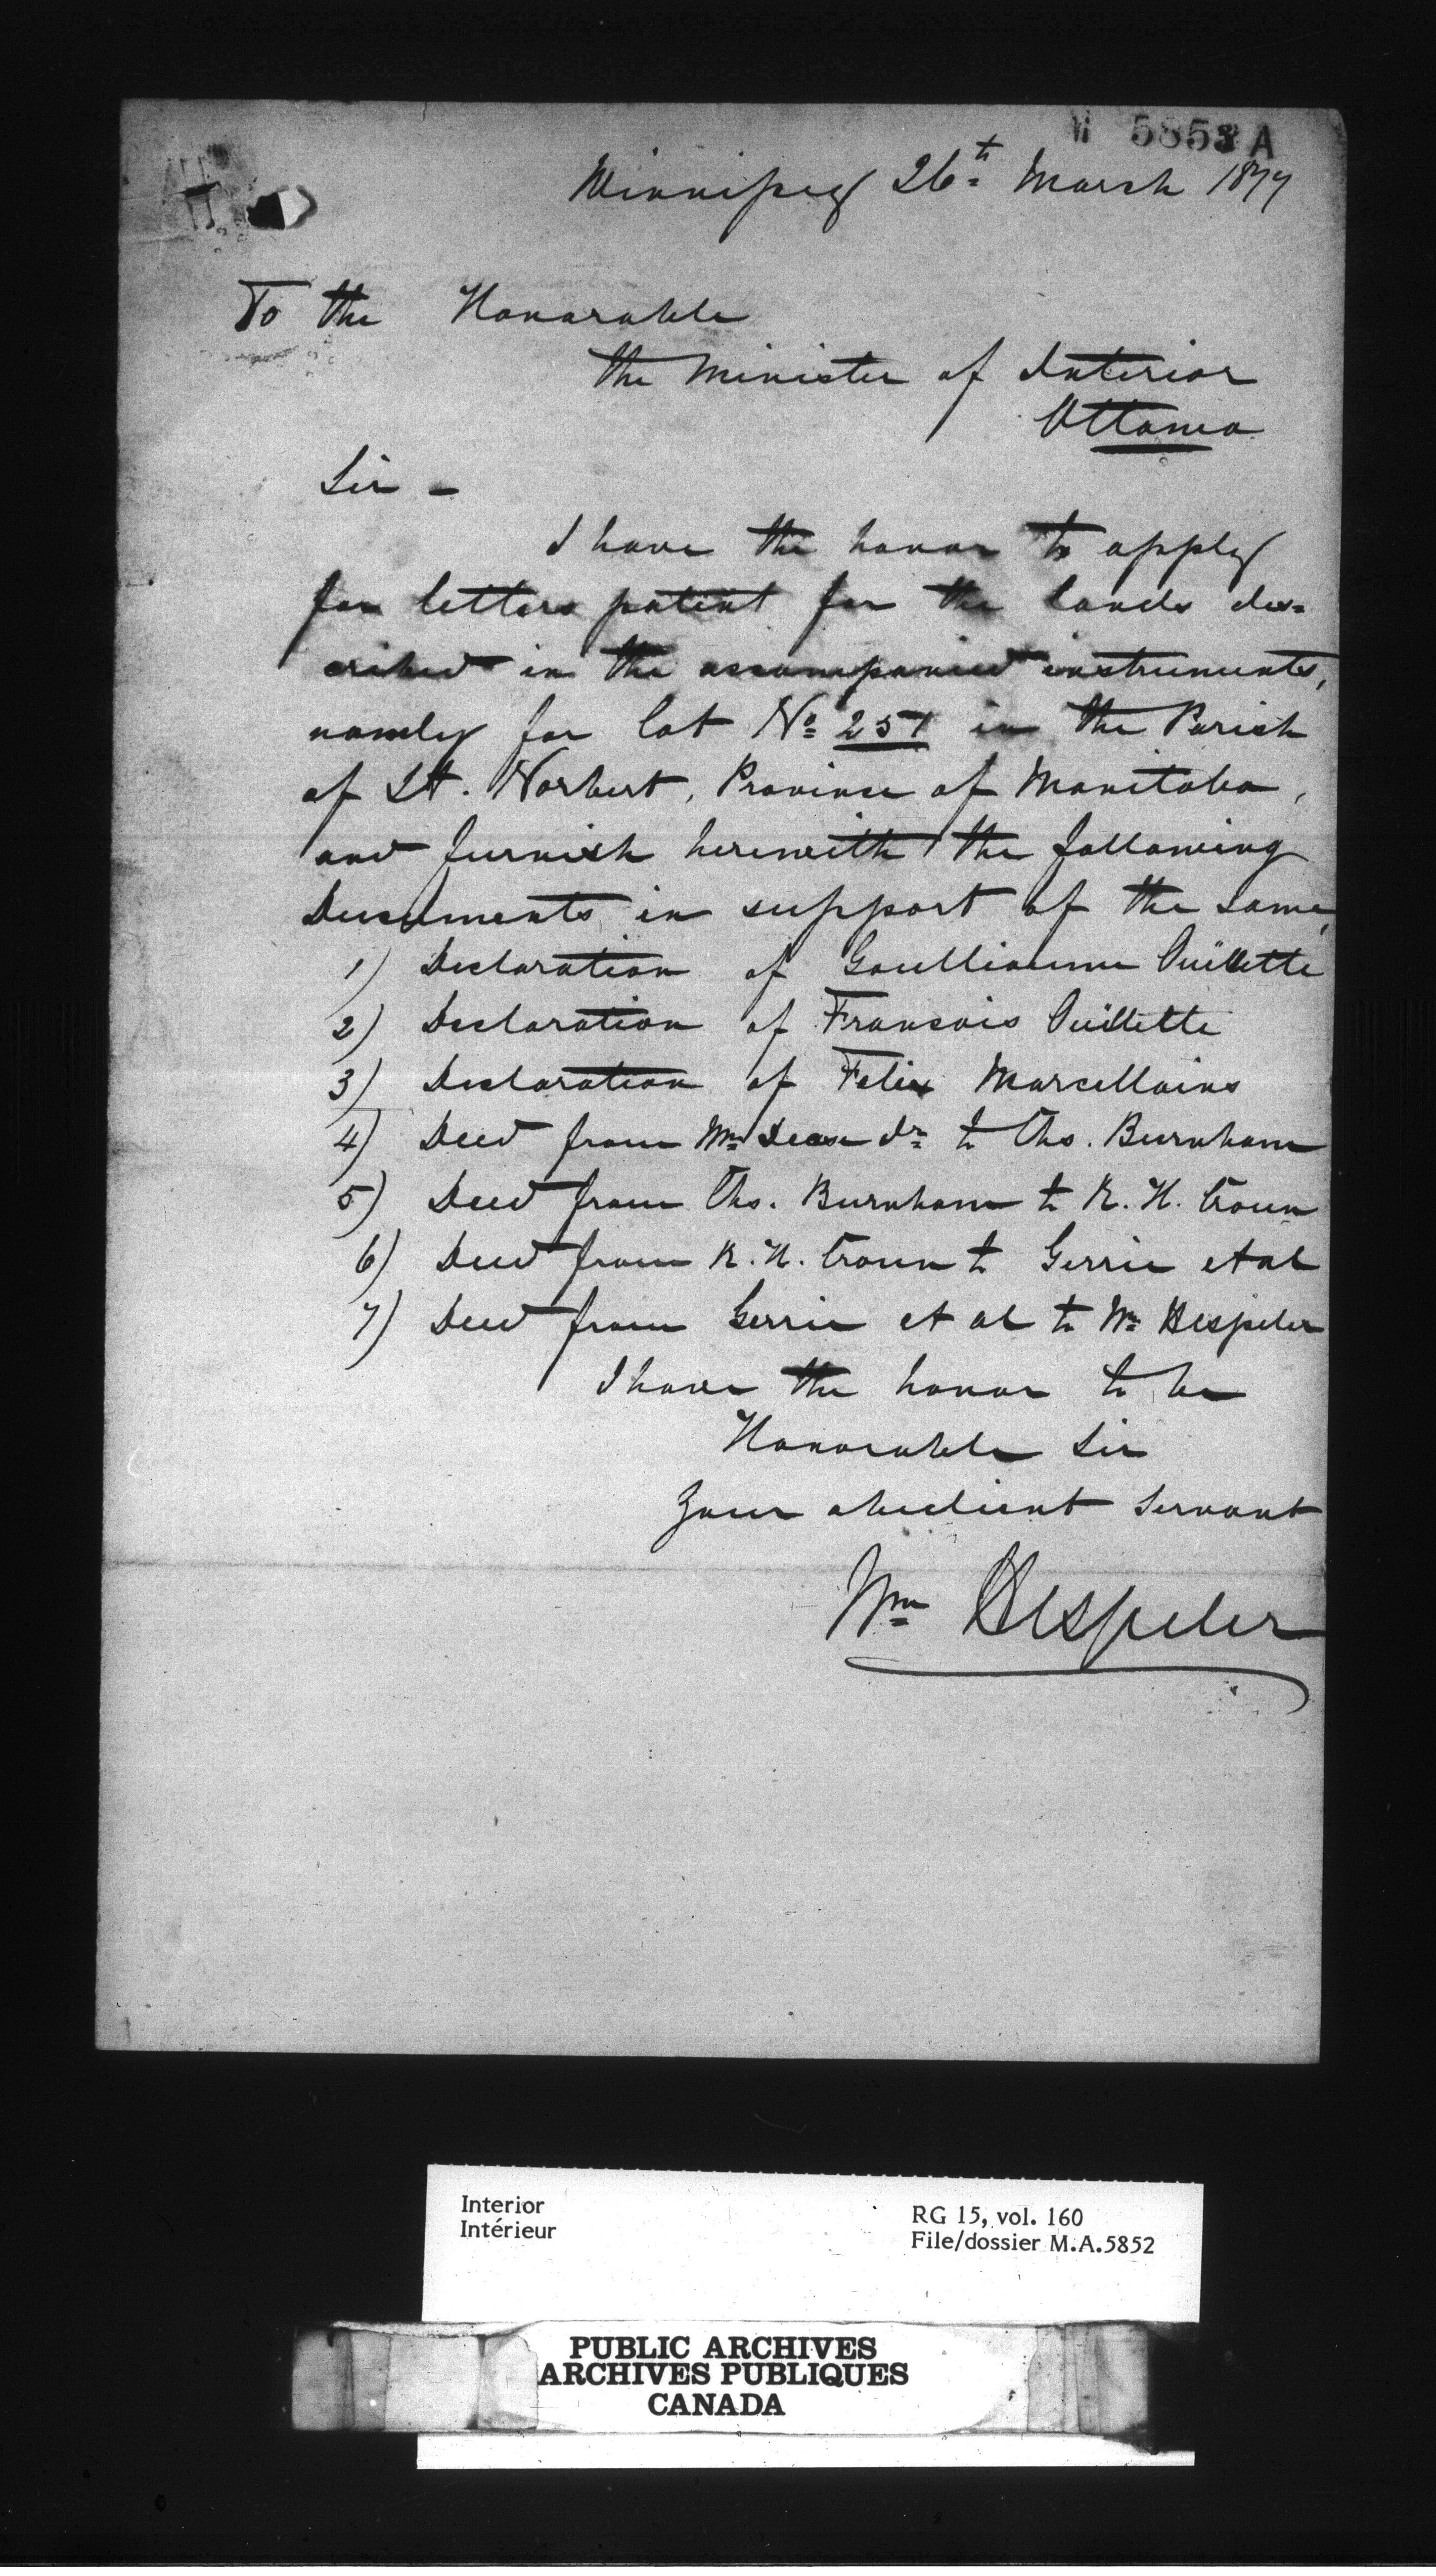 5853 A
Winnipeg 26th March 1877
To the Honorable
the Minister of Interior
Ottawa
Sir -
I have the honor to apply
for letters patent for the lands des=
cribed in the accompanied instruments,
namely for lot No 251 in the Parish
of St. Norbert, Province of Manitoba,
and furnish herewith the following
Documents in support of the same
1) Declaration of Goulliaume Ouillette
2) Declaration of Francois Ouillette
3) Declaration of Felix Marcellains
4) Deed from Wm Dease Jr to Ths. Burnham
5) Deed from Ths. Burnham to R. H.
6) Deed from R. H. to Gerrie et al
7) Deed from Gerrie et al to Wm Hespeler
I have the honor to be
Honorable Sir
Your obedient servant
Wm Hespeler
Interior
Intérieur
RG 15, vol. 160
File/dossier M.A.5852
PUBLIC ARCHIVES
ARCHIVES PUBLIQUES
CANADA